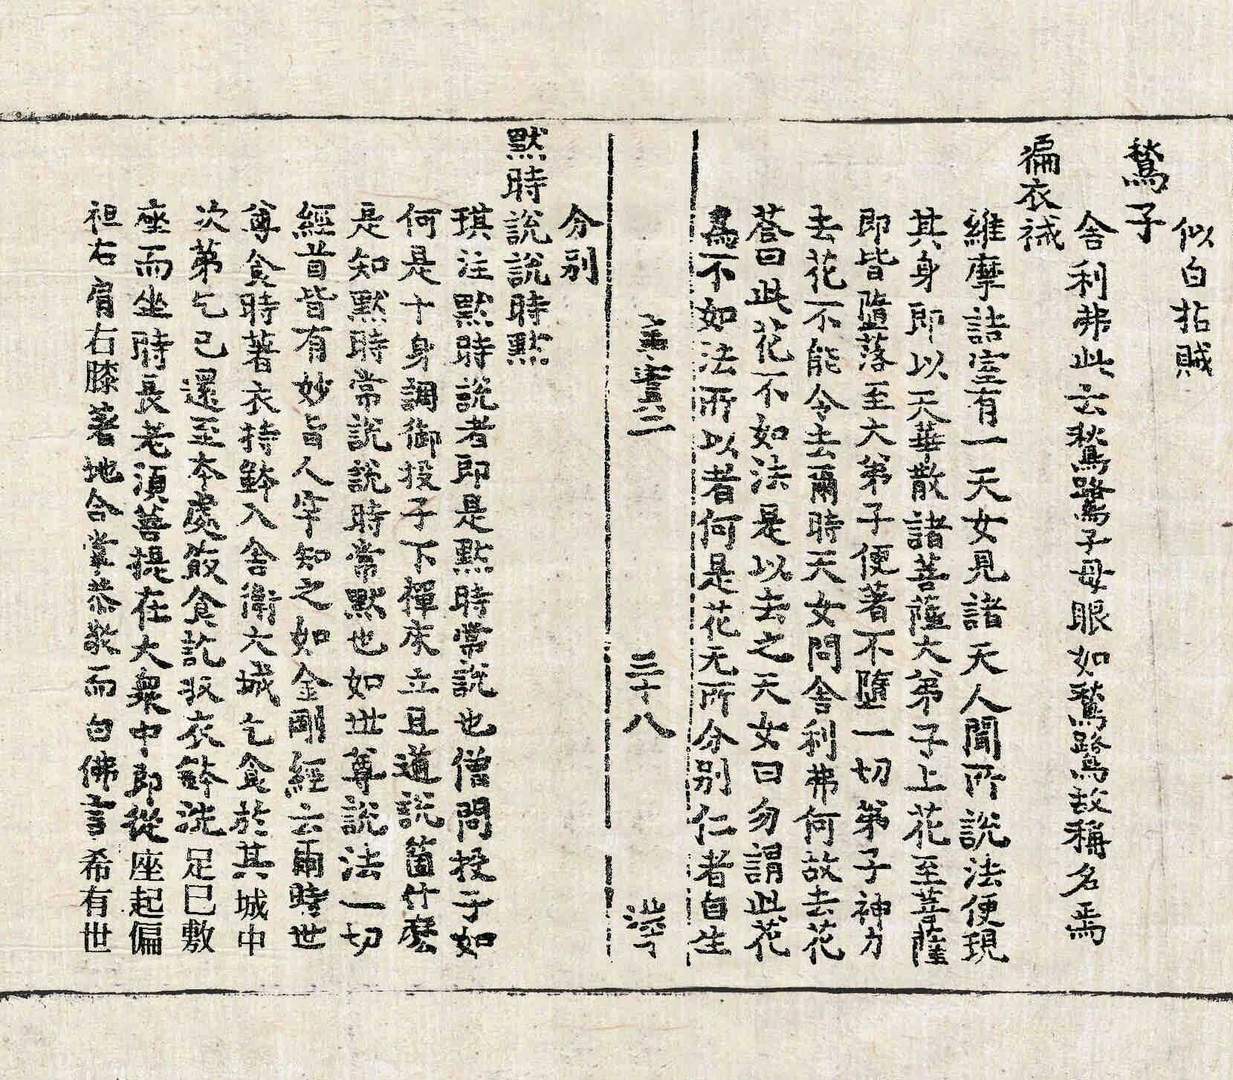 似白拈賊
鶖子
舍利弗此云鶖鷺子母眼如鶖鷺故稱名焉
徧衣祴
維摩詰室有一天女見諸天人聞所說法便現
其身即以天華散諸菩薩大弟子上花至菩薩
即皆墮落至大弟子便著不墮一切弟子神力
去花不能令去爾時天女問舍利弗何故去花
荅曰此花不如法是以去之天女曰勿謂此花
爲不如法所以者何是花无所分別仁者自生
三十八
分別
默時說說時默
琪注默時說者即是默時常說也僧問投子如
何是十身調御投子下禪床立且道說箇什麽
是知默時常說說時常默也如世尊說法一切
經首皆有妙旨人罕知之如金剛經云爾時世
尊食時著衣持鉢入舍衛大城乞食於其城中
次苐乞已還至本處飯食訖収衣鉢洗足巳敷
座而坐時長老湏菩提在大衆中即從座起偏
袒右肩右膝著地合掌恭敬而白佛言希有世